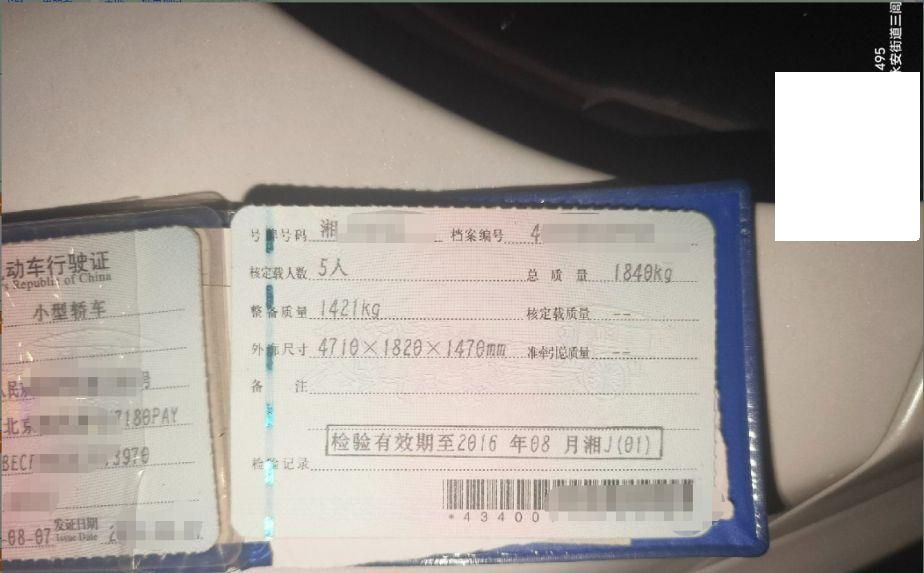 495
永安街道三闾
动车行驶证
's Republic of China
小型轿车
人民
号
北京
7180PAY
BECT
3970
-08-07 发证日期
Issue Date 2
号牌号码 湘 档案编号 4
核定载人数 5人 总质量 1840kg
整备质量 1421kg 核定载质量 --
外廓尺寸 4710×1820×1470mm 准牵引总质量 --
备 注
检验有效期至2016 年08 月湘J(01)
检验记录
*43400